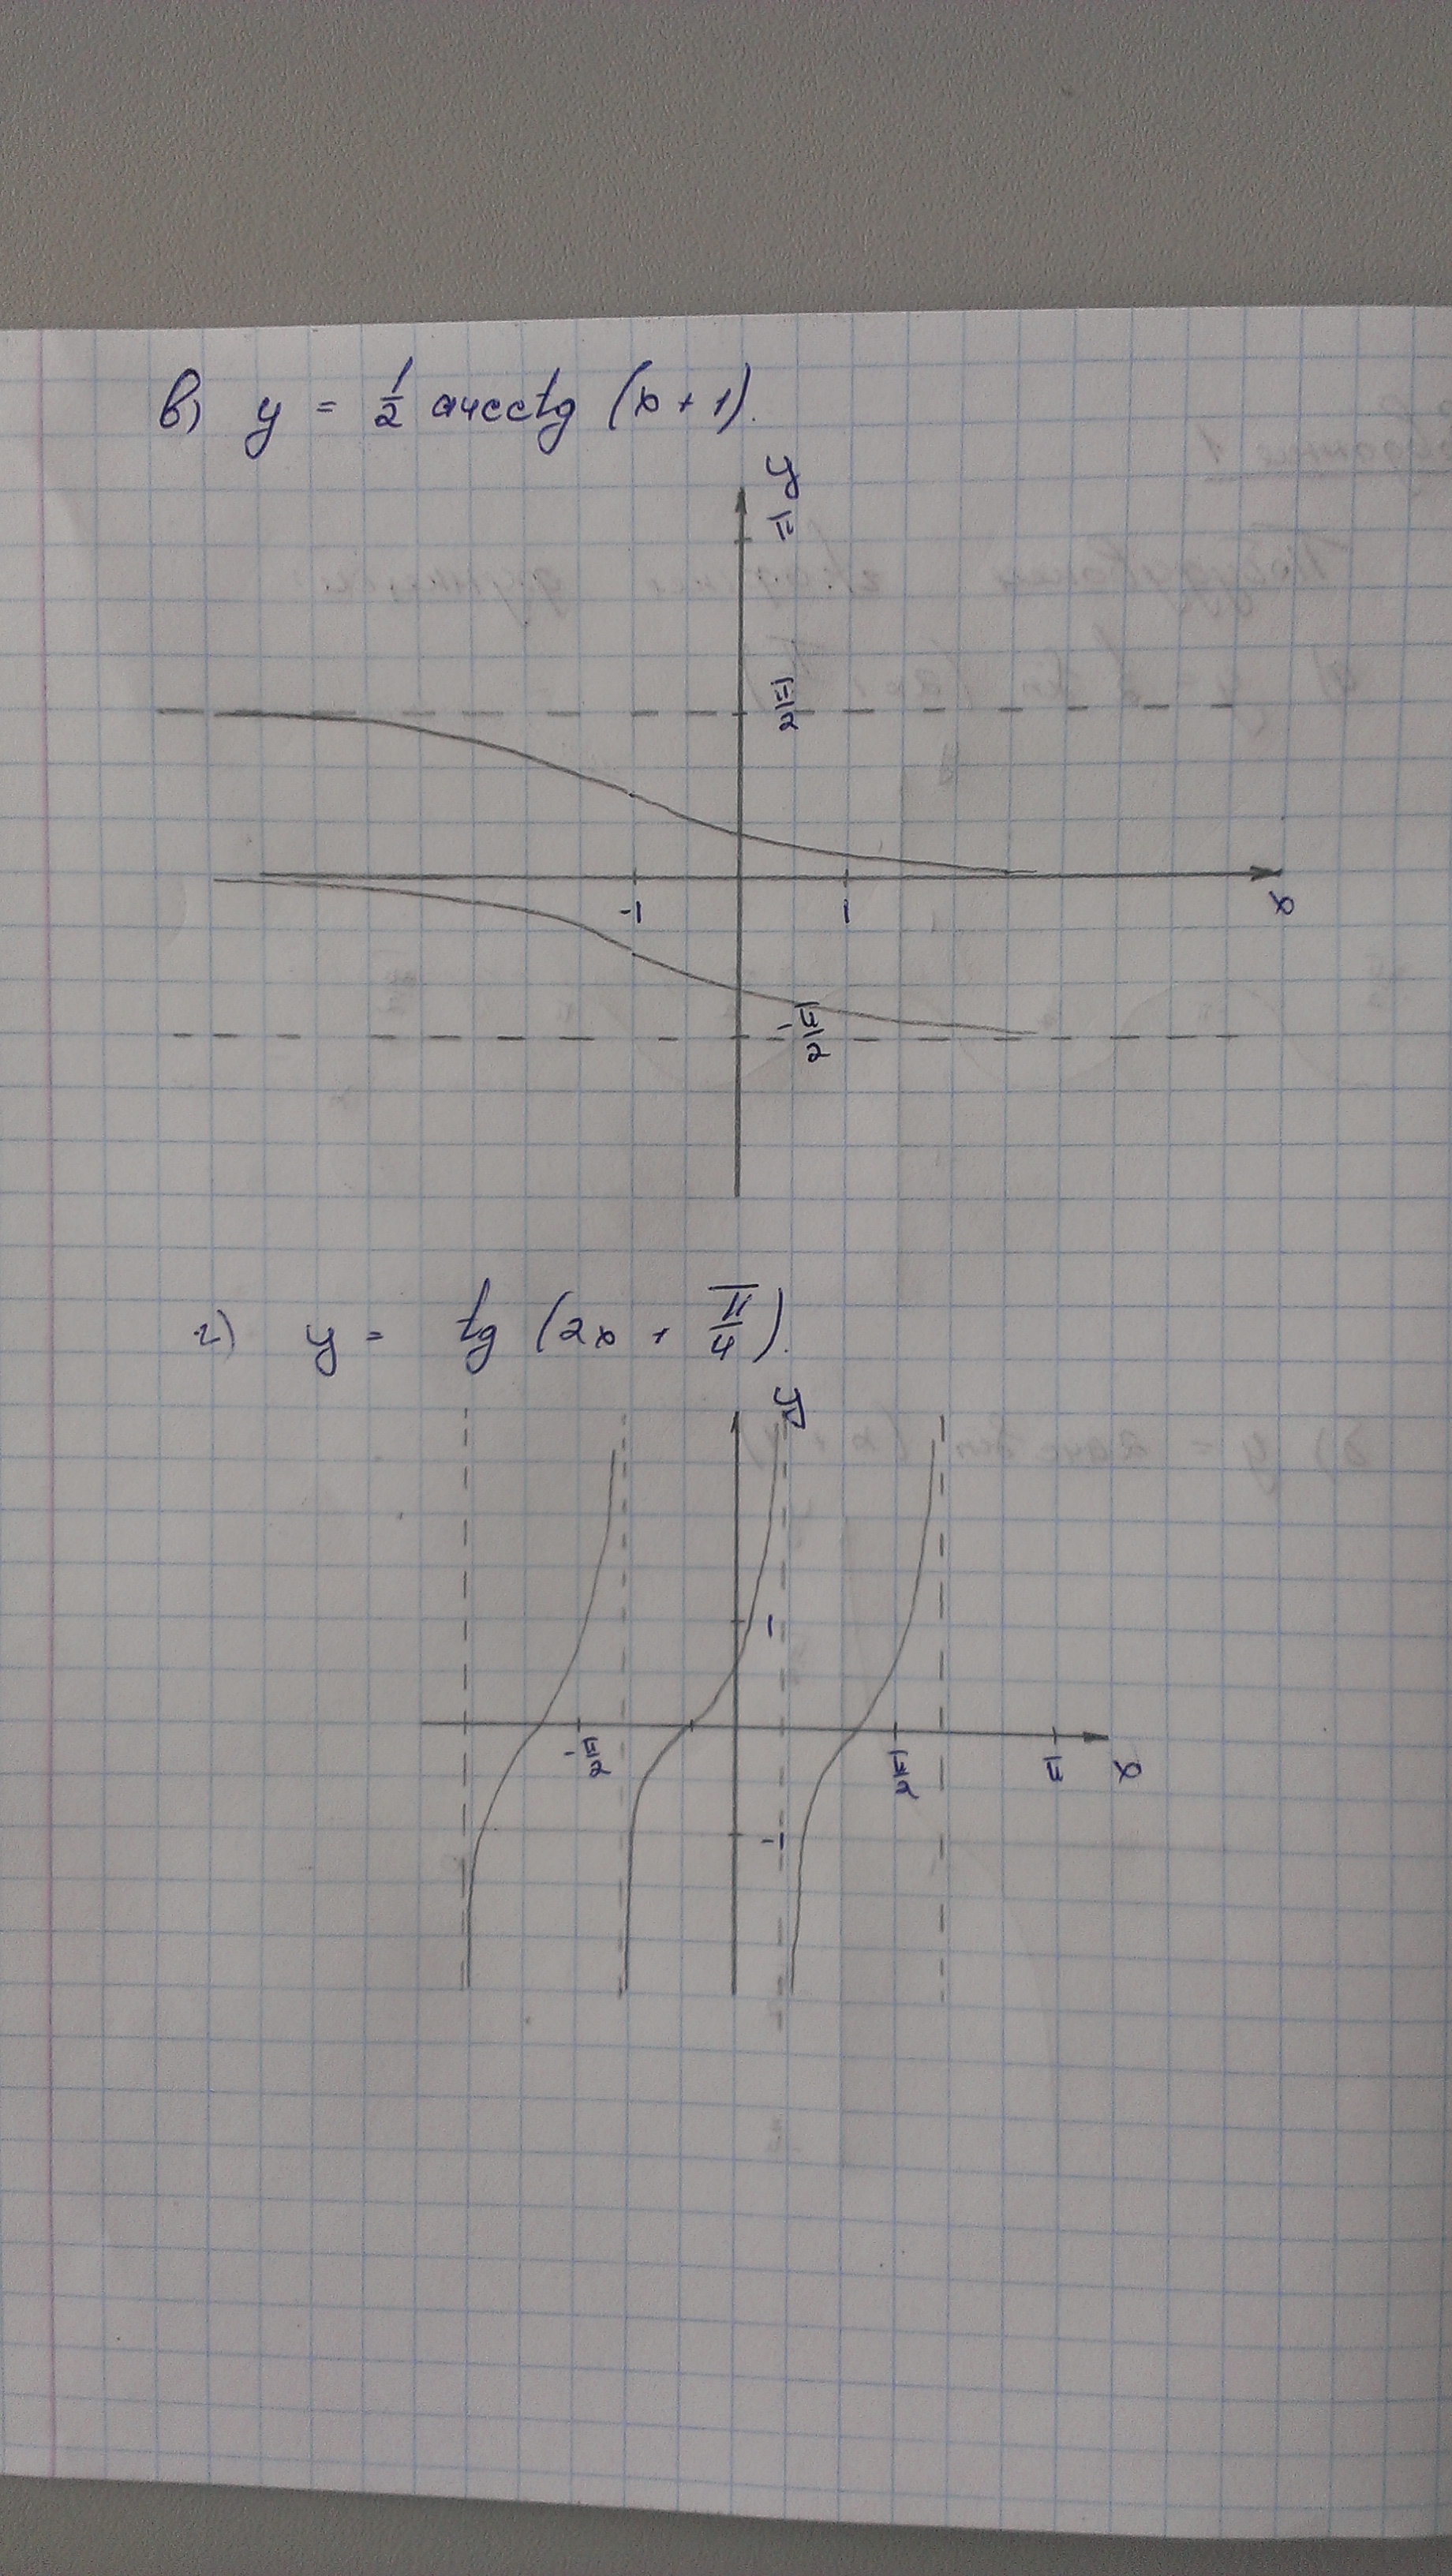 в) y = 1/2 arcctg (x + 1).
y
π
π/2
-1
1
x
-π/2
г) y = tg (2x + π/4).
y
1
-π/2
π/2
π
x
-1